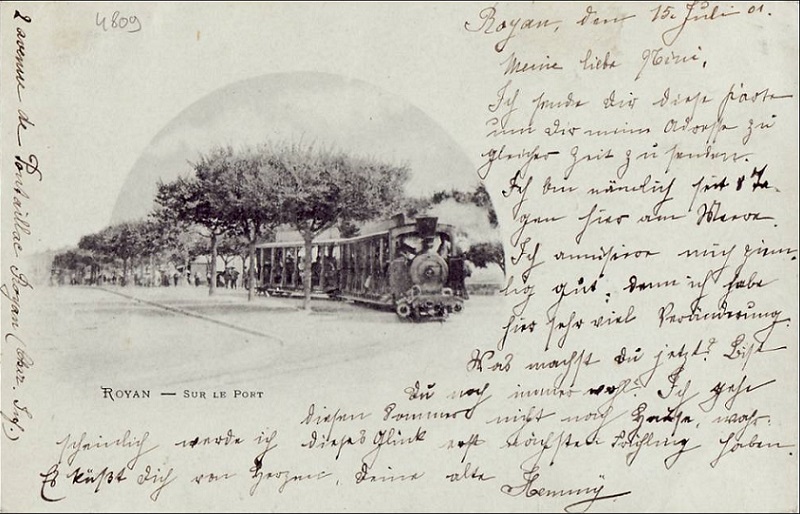 4809
Royan, den 15. Juli 01.
Meine liebe Nini,
Ich sende dir diese Karte
um dir meine Adresse zu
gleicher Zeit zu senden.
Ich bin nämlich seit 8 Ta-
gen hier am Meere.
Ich amüsiere mich ziem-
lig gut, denn ich habe
hier sehr viel Veränderung.
Was machst du jetzt? Bist
du noch immer wohl? Ich gehe
diesen Sommer nicht nach Hause, wahr-
scheinlich werde ich dieses Glück erst nächsten Frühling haben.
Es küßt dich von Herzen, deine alte Hemmy
ROYAN — SUR LE PORT
2 avenue de Pontaillac Royan (Char. Inf.)